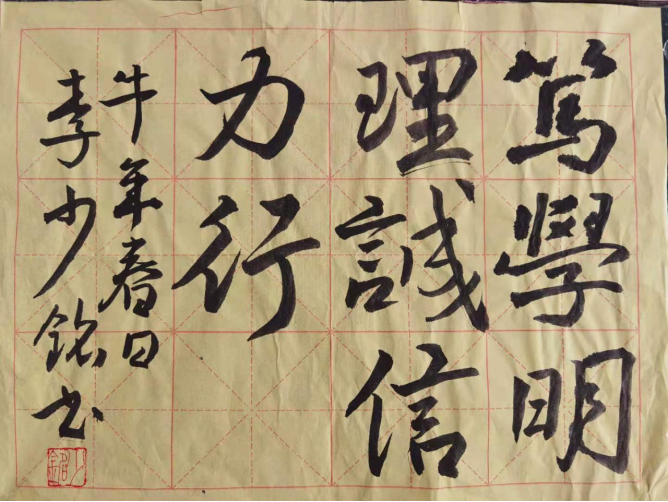 篤學明
理誠信
力行
牛年春日
李少銘书